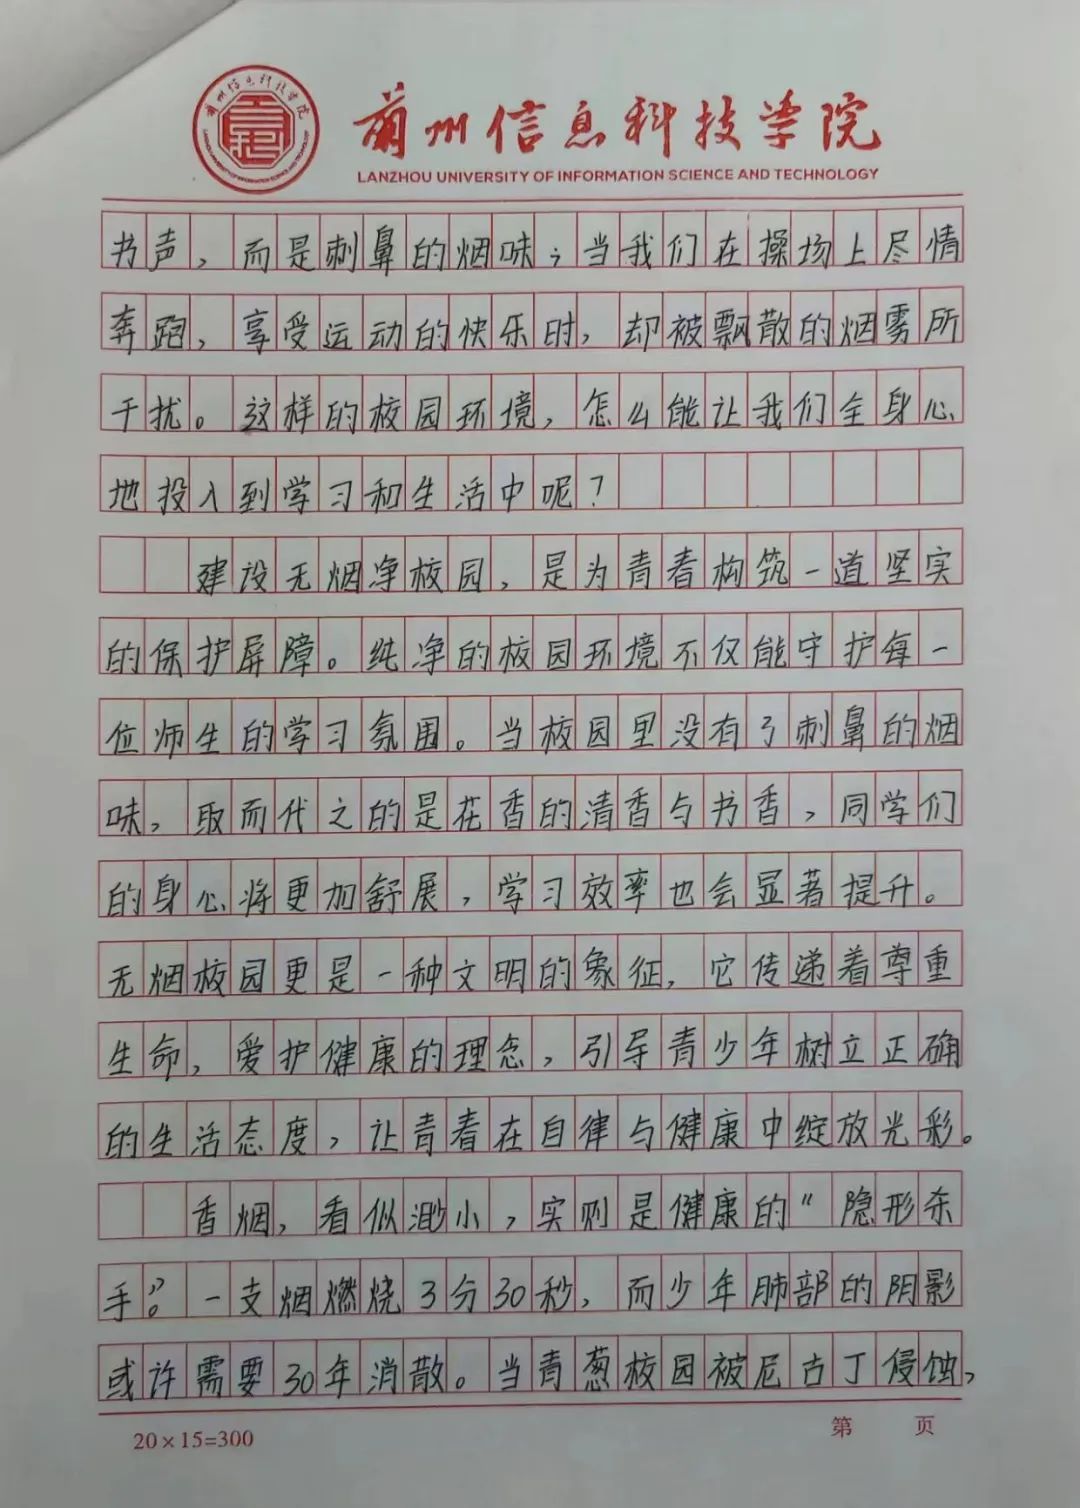 兰州信息科技学院
兰州信息科技学院
LANZHOU UNIVERSITY OF INFORMATION SCIENCE AND TECHNOLOGY
书声，而是刺鼻的烟味；当我们在操场上尽情
奔跑，享受运动的快乐时，却被飘散的烟雾所
干扰。这样的校园环境，怎么能让我们全身心
地投入到学习和生活中呢？
建设无烟净校园，是为青春构筑一道坚实
的保护屏障。纯净的校园环境不仅能守护每一
位师生的学习氛围。当校园里没有了刺鼻的烟
味，取而代之的是花香的清香与书香，同学们
的身心将更加舒展，学习效率也会显著提升。
无烟校园更是一种文明的象征，它传递着尊重
生命，爱护健康的理念，引导青少年树立正确
的生活态度，让青春在自律与健康中绽放光彩。
香烟，看似渺小，实则是健康的“隐形杀
手”。一支烟燃烧3分30秒，而少年肺部的阴影
或许需要30年消散。当青葱校园被尼古丁侵蚀，
20×15=300
第 页